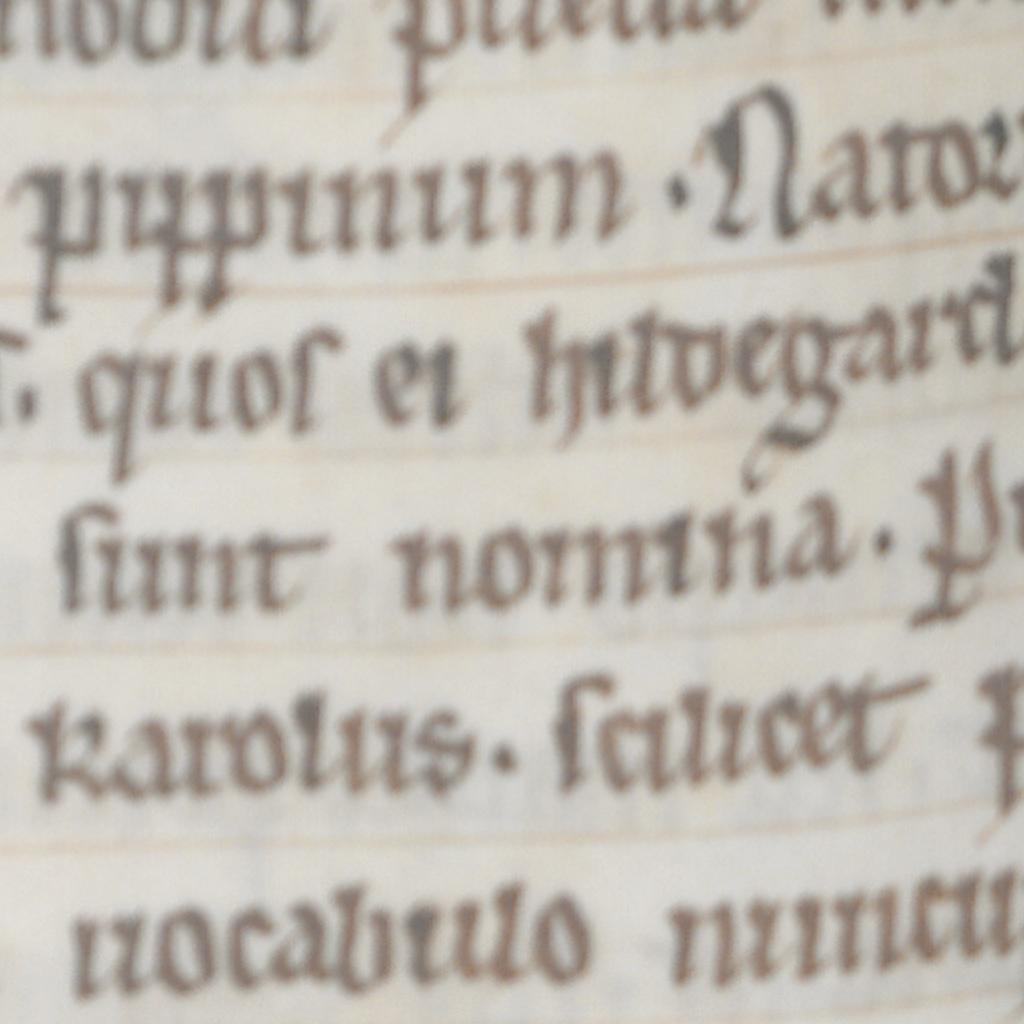 pippinum . Nator
. quos ei hildegard
sunt nomina . P
karolus . scilicet p
uocabulo nuncu